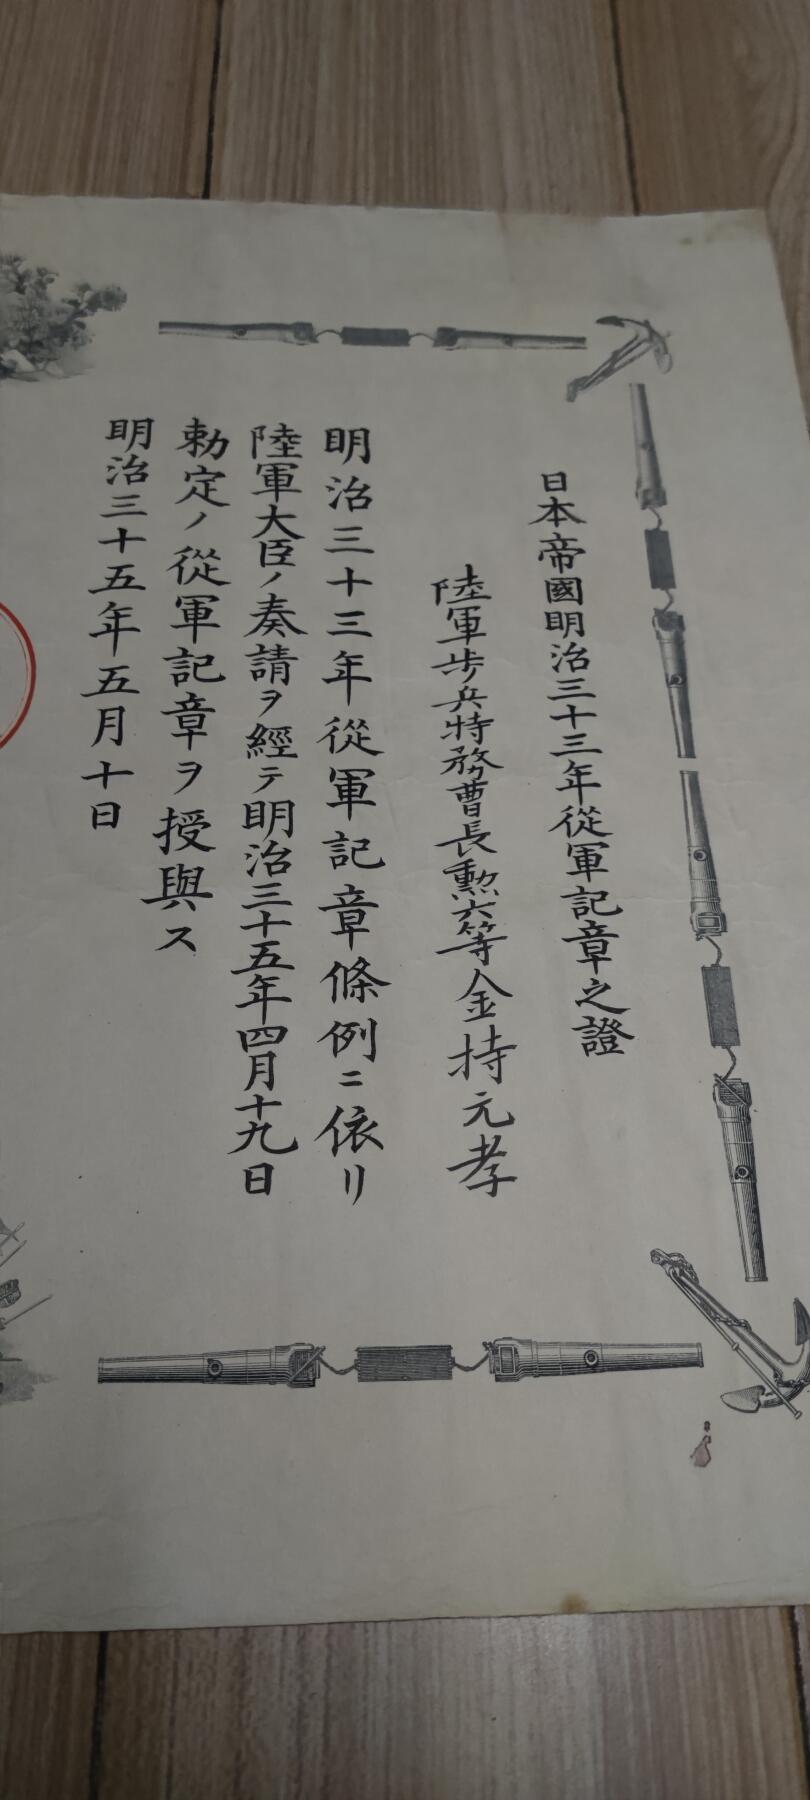 日本帝國明治三十三年從軍記章之證
陸軍步兵特務曹長勲六等金持元孝
明治三十三年從軍記章條例ニ依リ
陸軍大臣ノ奏請ヲ經テ明治三十五年四月十九日
勅定ノ從軍記章ヲ授與ス
明治三十五年五月十日